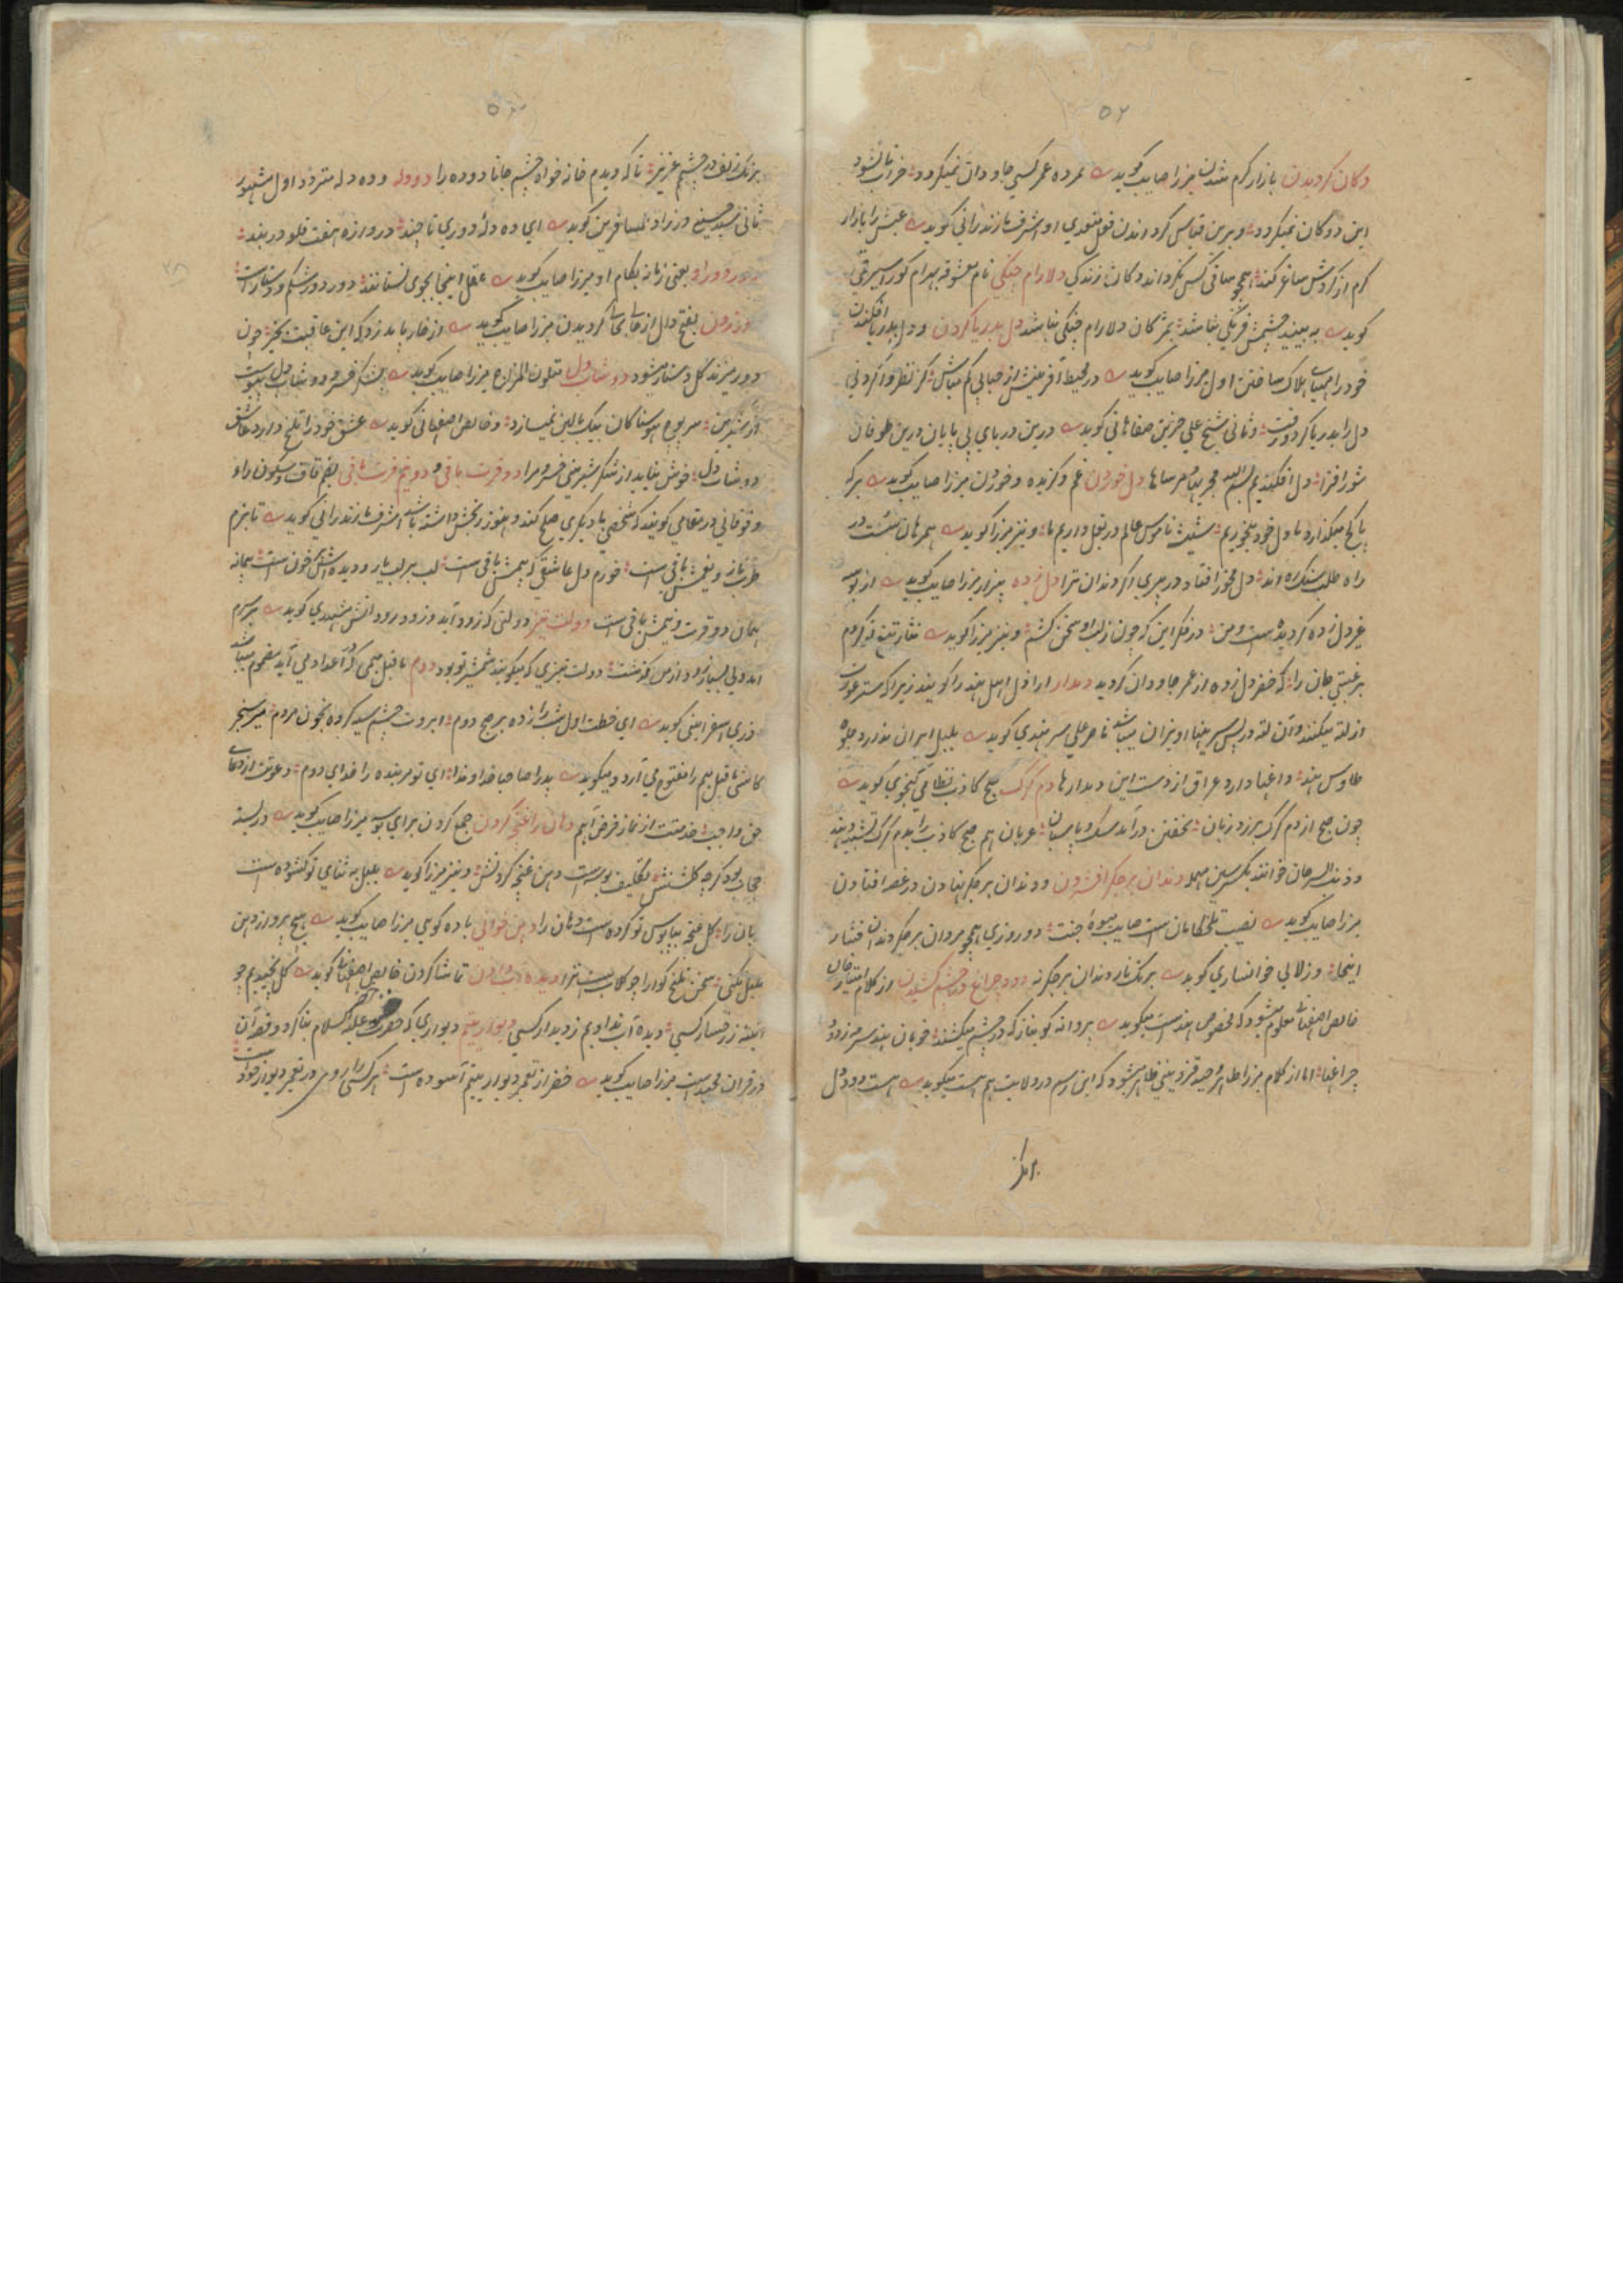 ۵۲
دکان گردیدن بازار گرم شدن میرزا صایب گوید مرده عمر کسی جاودان نمیگردد خراب تا نشود
این دوکان نمیگردد و برین قیاس گرداندن فعل متعدی او اشرف مازندرانی گوید عیش را بازار
گرم از گردش ساغر کند همچو ساقی کس نگرداند دکان زندگی دلارام چنگی نام معشوقه بهرام گور اسیری
گوید به بیند چشمش فرنگی نباشد بمژگان دلارام چنگی نباشد دل بدریا کردن و دل بدریا افکندن
خود را مهیای هلاک ساختن اول میرزا صایب گوید در محیط آفرینش از حبابی کم مباش کز نظر وا کردنی
دل را بدریا کرد و رفت و ثانی شیخ علی حزین صفاهانی گوید درین دریای بی پایان درین طوفان
شور افزا دل افکندیم بسم الله مجریها و مرساها دل خوردن غم و گزیده و خوردن میرزا صایب گوید هر که
پا کج میگذارد ما دل خود میخوریم شیشه ناموس عالم در بغل داریم ما و نیز میرزا گوید همرهان سست در
راه طلب سنگ ره اند دل مخور افتاد در پیری اگر دندان ترا دل زده بیزار میرزا صایب گوید از بوسه
غیر دل زده گردیده است و من در فکر این که چون ز لب او سخن کشم و نیز میرزا گوید نثار تیغ تو کردم
برغبتی جان را که خضر دل زده از عمر جاودان گردید دمدار اراذل اهل هند را گویند زیرا که ستر عورت
از لته میکنند و آن لته در پس سر ینها آویزان میباشد ناصر علی سرهندی گوید بلبل ایران ندارد جلوه
طاوس هند داغها دارد عراق از دست این دمدارها دم گرگ صبح کاذب نظامی گنجوی گوید
چون صبح از دم گرگ برزد زبان بخفتن درآمد سگ و پاسبان عربان هم صبح کاذب را بدم گرگ تشبیه دهند
و ذنب السرحان خوانند بکسر سین مهمله دندان بر جگر افشردن و دندان بر جگر نهادن در غصه افتادن
میرزا صایب گوید نصیب تلخکامان است صایب میوه جنت دو روزی همچو مردان بر جگر دندان فشار
اینجا و زلالی خوانساری گوید برنگ نار دندان بر جگر نه دود چراغ در چشم کشیدن از کلام امتیاز خان
خالص اصفهانی معلوم میشود که مخصوص هند است میگوید پروانه گو بناز که در چشم میکشند خوبان هند سرمه ز دود
چراغها اما از کلام میرزا طاهر وحید قزوینی ظاهر میشود که این رسم در ولایت هم هست میگوید هست دود دل
برنگ
۵۳
برنگ زلف در چشم عزیز تا که دیدم خانه خواه چشم جانا دوده را دودله و ده دله متردد اول مشهور
ثانی سید حسین در زاد المسافرین گوید ای ده دله دوری تا چند دروازه هفت قلعه در بند
دور دور او یعنی زمانه بکام او میرزا صایب گوید عقل اینجا بجوی نستانند دور دور شکم و دستارست
دزدیدن بفتح دال از جایی بجایی گردیدن میرزا صایب گوید از خار باید زدگی این عاقبت بخیر چون
دور میزند گل دستار میشود دوشاب دل متلون المزاج میرزا صایب گوید
از شیرین سر پرم بوسنا کان بیک بالین نمیسازد و خالص اصفهانی گوید عشق خود را تلخ دارد عاشق
دوشاب دل خوش نیاید از شکر شیرینی خسرو مرا دو قرت باقی و دو نیم قرت باقی بضم قاف و سکون راء
و فوقانی در مقامی گویند که شخصی با دیگری صلح کند و هنوز رنجش داشته باشد اشرف مازندرانی گوید تا بزم
طرب ناز و نعمش باقی است خورم دل عاشقی که همش باقی است لب بر لب یار و دیده اش خون است پیمانه
همان دو قرت و نیمش باقی است دولت تیز دولتی که زود آید و زود رود دانش مشهدی گوید بر سرم
آمد ولی بسیار زود از من گذشت دولت تیزی که میگویند شمشیر تو بود دوم ما قبل میمی که در اعداد می آید مضموم میباشد
وزیری اسفراینی گوید ای خطت اول شب را زده بر صبح دوم ابروت چشم سیه کرده بخون مردم میر سنجر
کاشی ما قبل میم را مفتوح می آرد و میگوید پدر را صاحبا خداوندا ای تو مر بنده را خدای دوم دعوتت از دعای
حق واجب خدمتت از نماز فرض اهم دهان را غنچه کردن جمع کردن برای بوسه میرزا صایب گوید در لبسته
حجاب بود گرچه گلشنش تکلیف بوسه است دهن غنچه کردنش و نیز میرزا گوید بلبل به ثنای تو گشوده است
زبان را گل غنچه بپابوس تو کرده است دهان را دهن خوانی یاده گویی میرزا صایب گوید هیچ پرواز دهن
بلبل نکنی سخن تلخ گوارا چو گلاب است ترا دیده آب دادن تماشا کردن خالص اصفهانی گوید گل نچیدیم چو
آئینه ز رخسار کسی دیده آب ندادیم ز دیدار کسی دیوار یتیم دیواری که خضر علیه السلام بنا کرد و قصه آن
در قرآن مجید است میرزا صایب گوید خضر از تعمیر دیوار یتیم آسوده است هر کسی را روی در تعمیر دیوار خودست